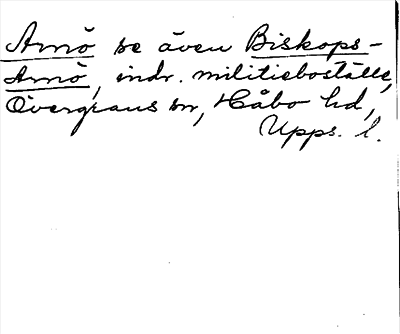 Arnö se även Biskops-
Arnö, indr. militieboställe,
Övergrans sn, Håbo hd,
Upps. l.